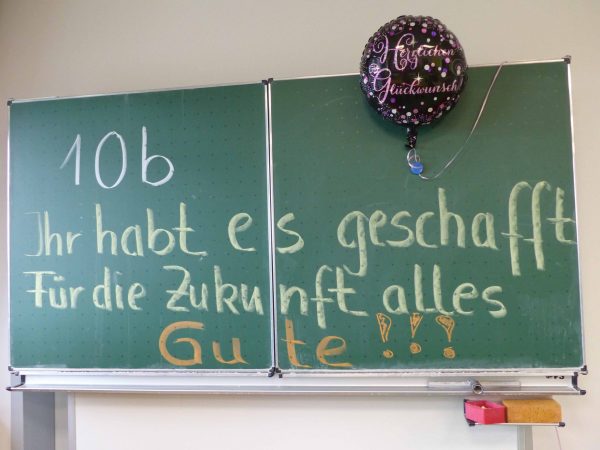 Herzlichen
Glückwunsch!
10b
Ihr habt es geschafft
Für die Zukunft alles
Gute!!!